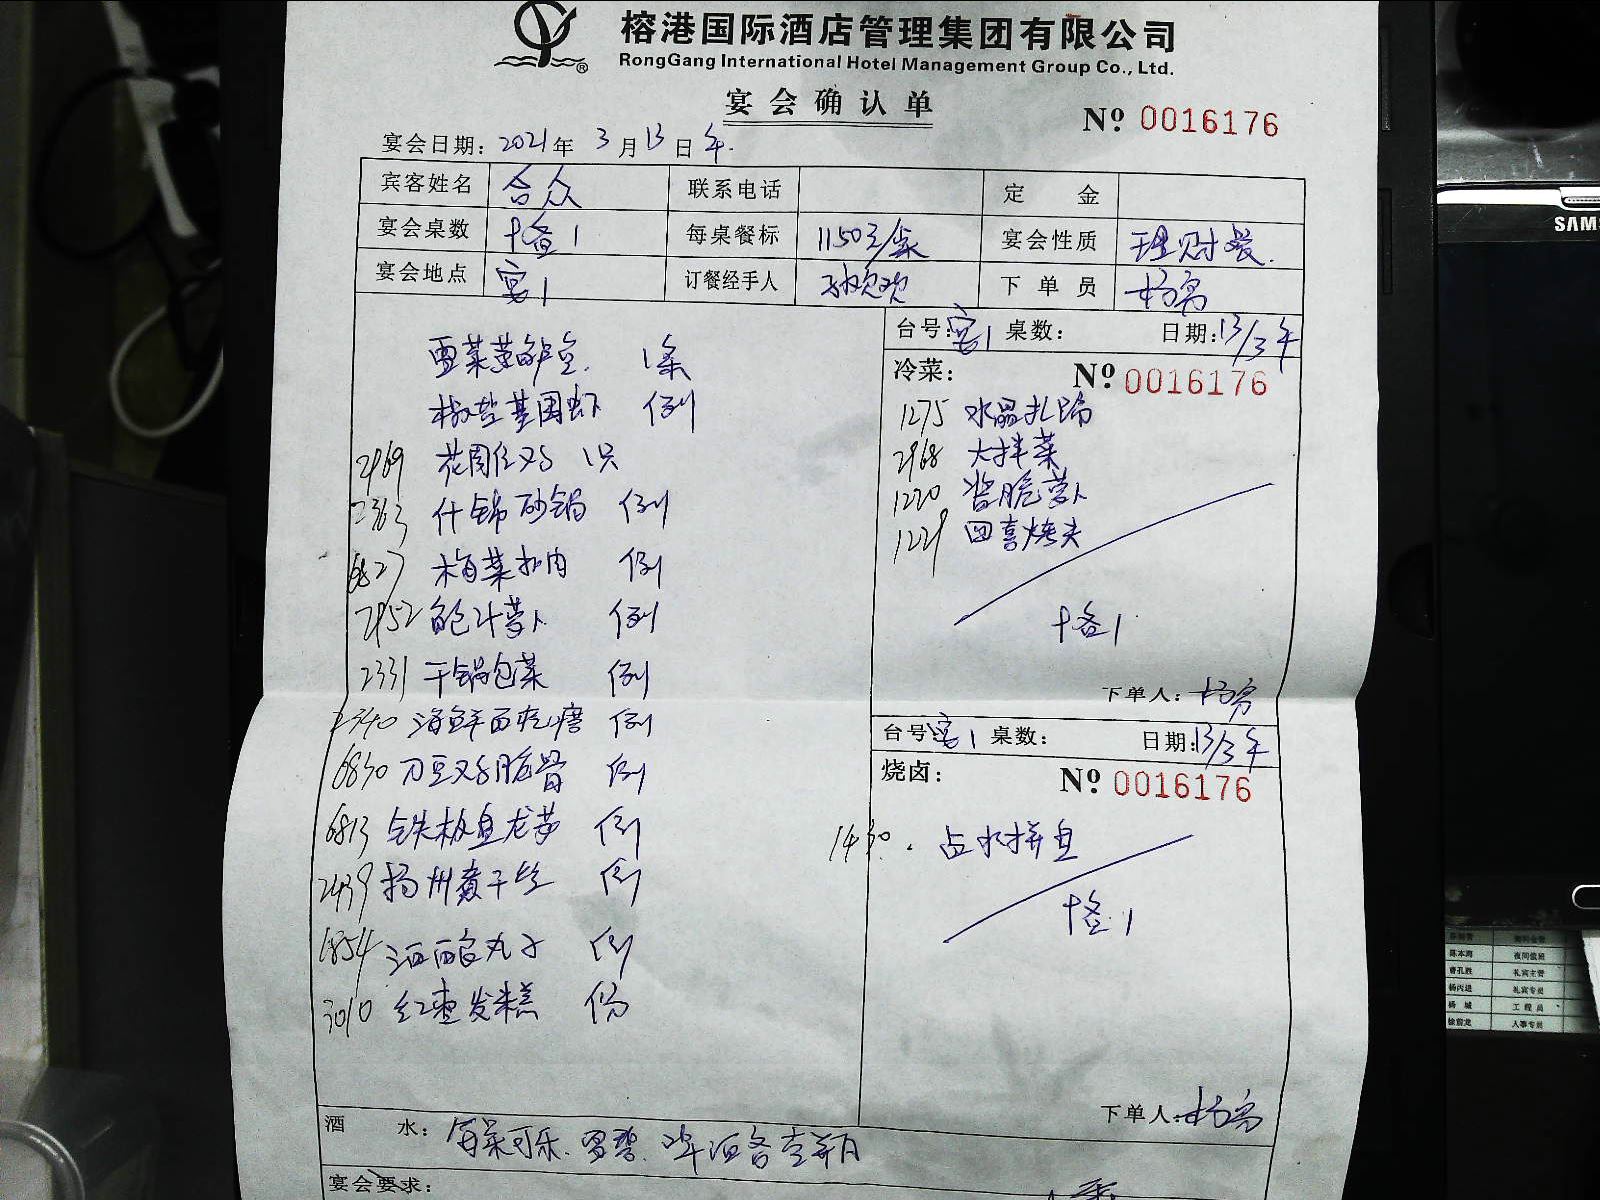 榕港国际酒店管理集团有限公司
RongGang International Hotel Management Group Co., Ltd.
宴会确认单
№ 0016176
宴会日期: 2021年 3月13日 午.
宾客姓名 合众 联系电话 定金
宴会桌数 十备1 每桌餐标 1150元/桌 宴会性质 理财餐.
宴会地点 宴1 订餐经手人 下单员 杨
台号: 宴1 桌数: 日期: 13/3 午
冷菜: № 0016176
1275 水晶扎蹄
2968 大拌菜
1220 酱脆萝卜
1229 四喜烤夫
十备1
下单人: 杨
雪菜蒸鲈鱼. 1条
椒盐基围虾 例
2969 花 1只
2363 什锦砂锅 例
6827 梅菜扣肉 例
2952 鲍汁萝卜 例
2331 干锅包菜 例
2340 海鲜面疙瘩 例
6830 刀豆 脆骨 例
6813 铁板鱼龙萝 例
2439 扬州煮干丝 例
1854 酒酿丸子 例
3010 红枣发糕 份
台号: 宴1 桌数: 日期: 13/3 午
烧卤: № 0016176
1430. 卤水拼盘
十备1
下单人: 杨
酒水: 每桌可乐. 雪碧. 啤酒各壹
宴会要求:
SAMS